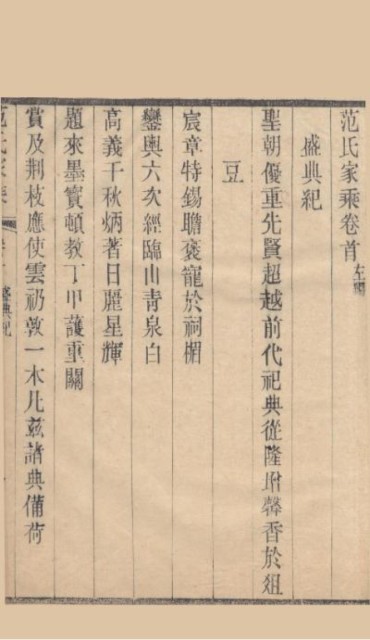 范氏家乘卷首 左編
盛典紀
聖朝優重先賢超越前代祀典從隆增馨香於俎
豆
宸章特錫瞻褒寵於祠楣
鑾輿六次經臨山青泉白
高義千秋炳著日麗星輝
題來墨寶頓教丁甲護重關
賞及荆枝應使雲礽敦一木凡兹諸典備荷
范氏家乘 盛典紀